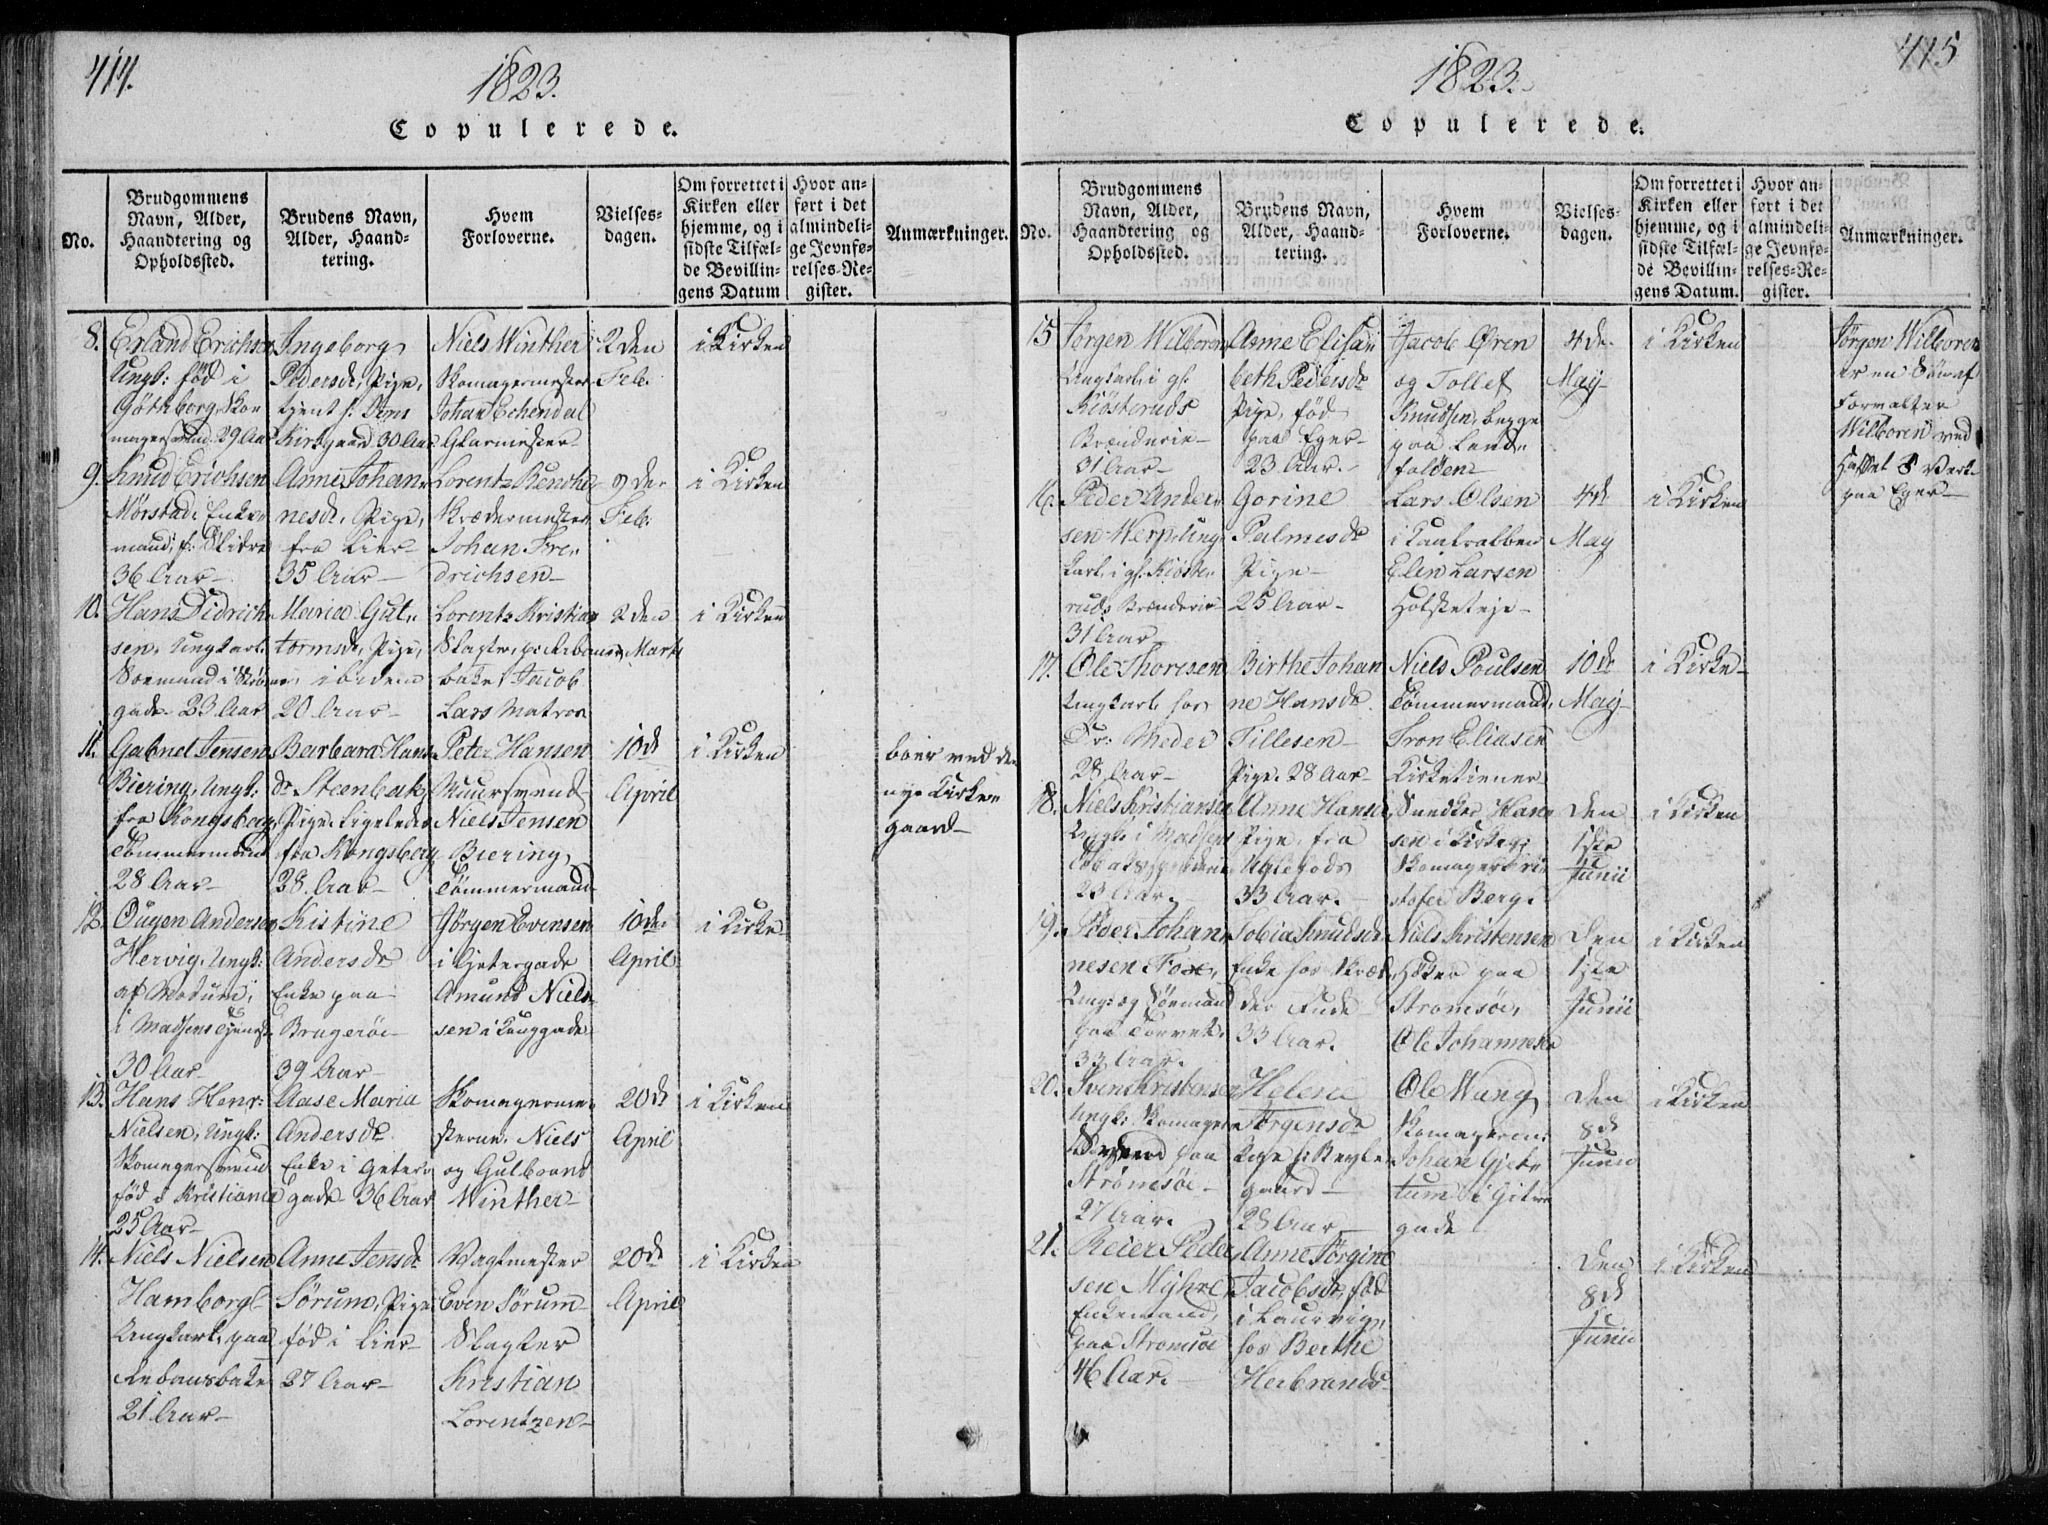 414.
1823.
Copulerede.
No.
Brudgommens Navn, Alder, Haandtering og Opholdssted.
Brudens Navn, Alder, Haandtering.
Hvem Forloverne.
Vielses-dagen.
Om forrettet i Kirken eller hjemme, og i sidste Tilfælde Bevillingens Datum
Hvor anført i det almindelige Jevnførelses-Register.
Anmærkninger.
8. Erland Erichsen
Ungk: fød i
Gøthborg, Sko-
magersvend 29 Aar
Ingeborg
Pedersdr, Pige,
tjent
Kirkgaard 30 Aar
Niels Winther
Skomagermester
Johan Echendal
Glarmester
2den
Feb.
i Kirken
9. Knud Erichsen
Mørstad, Enke-
mand,
36 Aar
Anne Johan-
nesdr, Pige,
fra Lier
35 Aar
Lorentz
Skrædermester
Johan Fre-
drichsen
9de
Feb.
i Kirken
10. Hans Didrich-
sen, Ungkarl
Søemand i
gade 23 Aar
Maria Gut-
tormsdr, Pige,
ibidem
20 Aar
Lorentz Kristian
Slagter,
Jacob
Lars Matros
2den
Marts
i Kirken
11. Gabriel Jensen
Biering, Ungk:
fra Kongsberg
Tømmermand
28 Aar
Barbara Hans-
dr Steenbak,
Pige, Ligeledes
fra Kongsberg
28 Aar
Peter Hansen
Muursvend
Niels Jensen
Biering,
Tømmermand
10de
April
i Kirken
boer ved den
nye Kirke-
gaard
12. Ougen Andersen
Hervig, Ungk:
af Modum,
i Madsens Tjeneste
30 Aar
Kistine
Andersdr
Enke paa
Bragerøe
39 Aar
Jørgen Evensen
i Gjetergade
Amund Niel-
sen i Langgade
10de
April
i Kirke
13. Hans Henr:
Nielsen, Ungk:
Skomagersvend
fød i Kristiania
25 Aar
Aase Maria
Andersdr
Enke i Geter-
gade 36 Aar
Skomagerme-
sterne, Niels
og Gulbrand
Winther
20de
April
i Kirken
14. Niels Nielsen
Hamborg
Ungkarl, paa
Rebansbake
21 Aar
Anne Jensdr
Sørum, Pige
fød i Lier
27 Aar
Vagtmester
Even Sørum
Slagter
Kristian
Lorentzen
20de
April
i Kirken
415
1823.
Copulerede.
No.
Brudgommens Navn, Alder, Haandtering og Opholdssted.
Brudens Navn, Alder, Haandtering.
Hvem Forloverne.
Vielses-dagen.
Om forrettet i Kirken eller hjemme, og i sidste Tilfælde Bevillingens Datum.
Hvor anført i det almindelige Jevnførelses-Register.
Anmærkninger.
15 Jørgen Wilboren
Ungkarl i
Kiösteruds
Brænderie
31 Aar
Anne Elisa-
beth Pedersdr
Pige, fød
paa Eger
23 Aar.
Jacob Øren
og Tollef
Knudsen, begge
paa Land-
falden
4de
May
i Kirken
Jørgen Wilboren
er en Søn af
Forvalter
Wilboren ved
Hassel Verk
paa Eger
16. Peder Ander-
sen Werp, Ung-
karl, i Kiöste-
ruds Brænderie
31 Aar
Gorine
Palmesdr
Pige
25 Aar
Lars Olsen
i
Elin Larsen
4de
May
i Kirken
17. Ole Thoresen
Ungkarl hos
Meder
28 Aar
Birthe Johan
ne Hansdr
Tillesen
Pige, 28 Aar
Niels Poulsen
Tømmermand,
Tron Eliasen
Kirketiener
10de
May
i Kirke
18. Niels Kristiansen
Ungk: i Madsens
23 Aar.
Anne Hansdr
Pige, fra
33 Aar.
Snedker Han-
sen i
Skomager Kri-
stofer Berg.
Den
1ste
Junii
i Kirken
19. Peder Johan-
nesen Foss,
Ung: og Søemand
paa Torvet.
33 Aar.
Sobia Knudsdr
Enke hos Skræd-
der
33 Aar.
Niels Kristensen
Høker paa
Stromsøe,
Ole Johannesen
Den
1ste
Junii
i Kirken
20. Svend Kristensen
Ungk: Skomager-
svend paa
Strømsøe
27 Aar.
Helene
Jørgensdr
Pige
gaard
28 Aar
Ole Wang
Skomageren:
Johan Gjet-
tum i Gite-
gade
Den
8de
Junii
i Kirken
21. Reier Peder-
sen Myhre
Enkemand,
paa Stromsøe
46 Aar.
Anne Jørgine
Jacobsdr, fød
i Laurvig,
hos Berthe
Herbrands
Den
8de
Junii
i Kirken